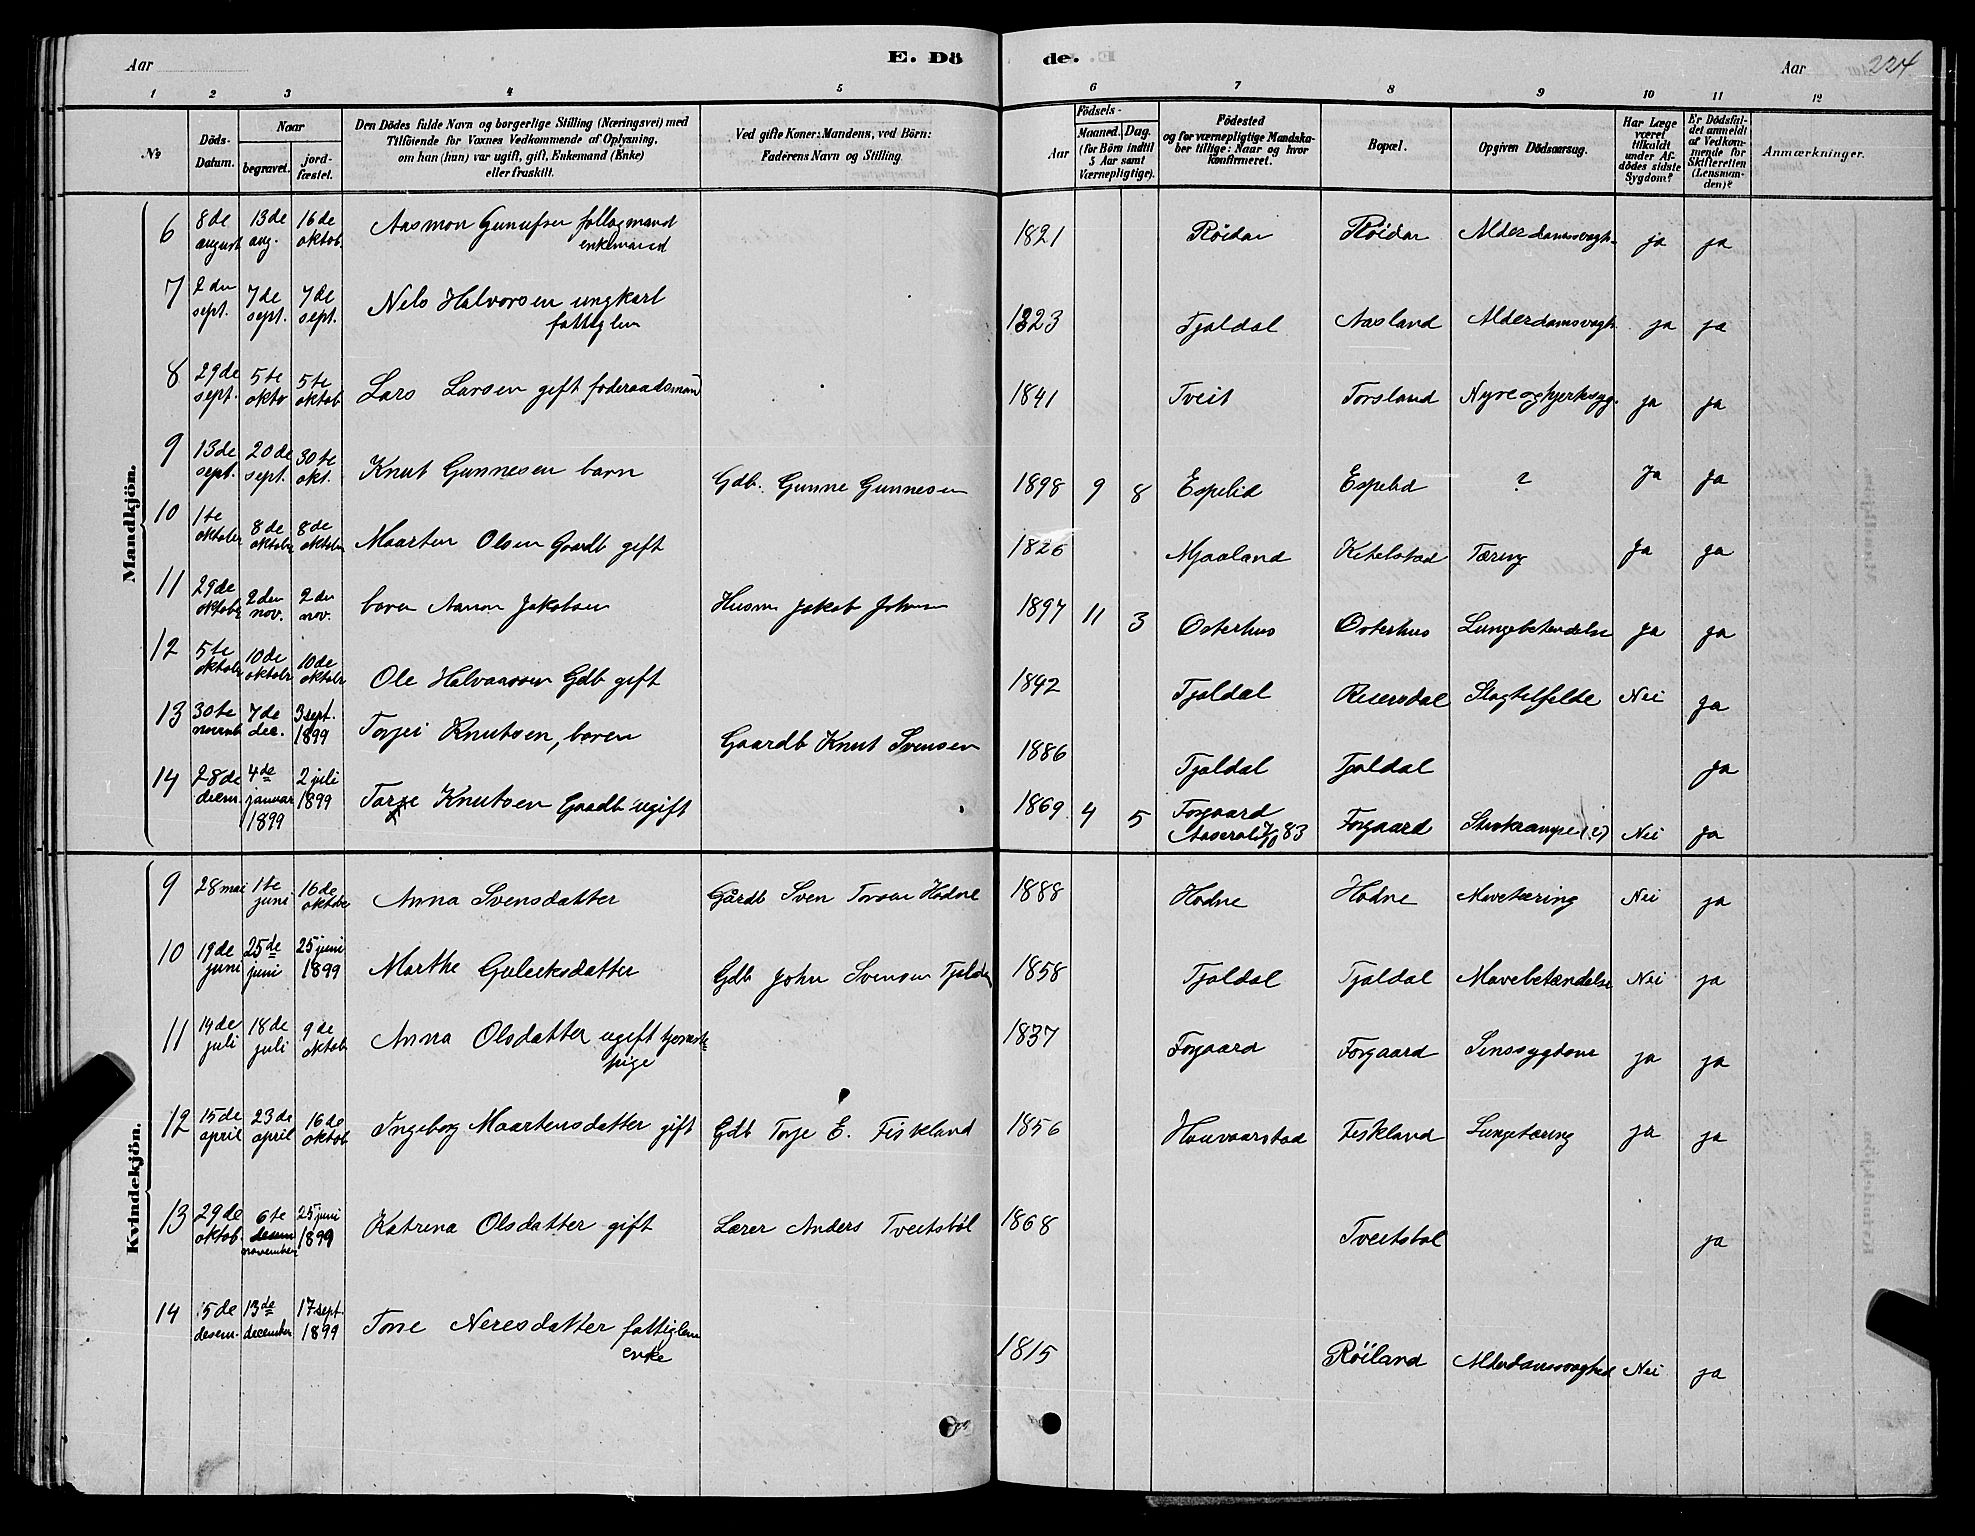 Aar
E. Dö
de.
Aar
224
1 2 3 4 5 6 7 8 9 10 11 12
No
Döds-Datum.
Naar
begravet.
jord-fæstet.
Den Dödes fulde Navn og borgerlige Stilling (Næringsvei) med
Tilföiende for Voxnes Vedkommende af Oplysning,
om han (hun) var ugift, gift, Enkemand (Enke)
eller fraskilt.
Ved gifte Koner: Mandens, ved Börn:
Faderens Navn og Stilling
Födsels-
Aar
Maaned. Dag.
(for Börn indtil
5 Aar samt
Værnepligtige).
Födested
og for værnepligtige Mandska-
ber tillige: Naar og hvor
Konfirmeret.
Bopæl.
Opgiven Dödsaarsag.
Har Læge
været
tilkaldt
under Af-
dödes sidste
Sygdom?
Er Dödsfal-
det anmeldt
af Vedkom-
mende for
Skifteretten
(Lensman-
den)?
Anmærkninger.
Mandkjön.
6 8de august 13de aug. 16de oktob. Aasmon enkemand 1821 Röidar Röidar ja ja
7 2den sept. 7de sept. 7de sept. Nels Halvorsen ungkarl fattiglem 1823 Tjaldal Aasland Alderdomsvagh. ja ja
8 29de sept. 5te oktob 5te oktob Lars Larsen gift foderaadsmand 1841 Tveit Torsland Nyre og hjertesyg. ja ja
9 13de sept. 20de sept. 30te okt. Knut Gunnesen barn Gdb. Gunne Gunnesen 1898 9 8 Espelid Espelid ? Ja Ja
10 1te oktober 8de oktobr 8de oktober Maarten Olsen Gaardb gift 1826 Mjaaland Ketelstad Tæring Ja ja
11 29de oktobr 2den nov. 2den nov. barn Aanon Jakobsen Husm Jakob Johnsen 1897 11 3 Osterhus Osterhus Lungebetendelse ja ja
12 5te oktobr 10de oktobr 10de oktobr Ole Halvaarsen Gdb gift 1842 Tjaldal Reiersdal Slagtilfelde Nei Ja
13 30te novemb 7de dec. 3 sept. 1899 Torjei Knutsen, baren Gaardb Knut Svensen 1886 Tjaldal Tjaldal Ja
14 28de decem. 4de januar 1899 2 juli 1899 Torje Knutsen Gaardb ugift 1869 4 5 Forgaard Aaseral 83 Forgaard Nei Ja
Kvindekjön.
9 28 mai 1te juni 16de oktober Anna Svensdatter Gårdb Sven Hodne 1888 Hodne Hodne Mavetæring Nei ja
10 19de juni 25de juni 25 juni 1899 Marthe Guleeksdatter Gdb John Svensen Tjaldal 1858 Tjaldal Tjaldal Mavebetændelse Nei ja
11 14de juli 18de juli 9de oktob Anna Olsdatter ugift tjeneste pige 1837 Forgaard Forgaard Sinssygdom ja ja
12 15de april 23de april 16de oktob Ingeborg Maartensdatter gift Gdb Torje E. Fiskland 1856 Houvaarstad Fiskland Lungetæring ja ja
13 29de oktob. 6te desem november 25 juni 1899 Katrina Olsdatter gift Lærer Anders Tveitsböl 1868 Tveitsbol ja
14 5de desem. 13de december 17 sept. 1899 Tone Neresdatter fattiglem enke 1815 Röiland Alderdomssvaghed Nei ja